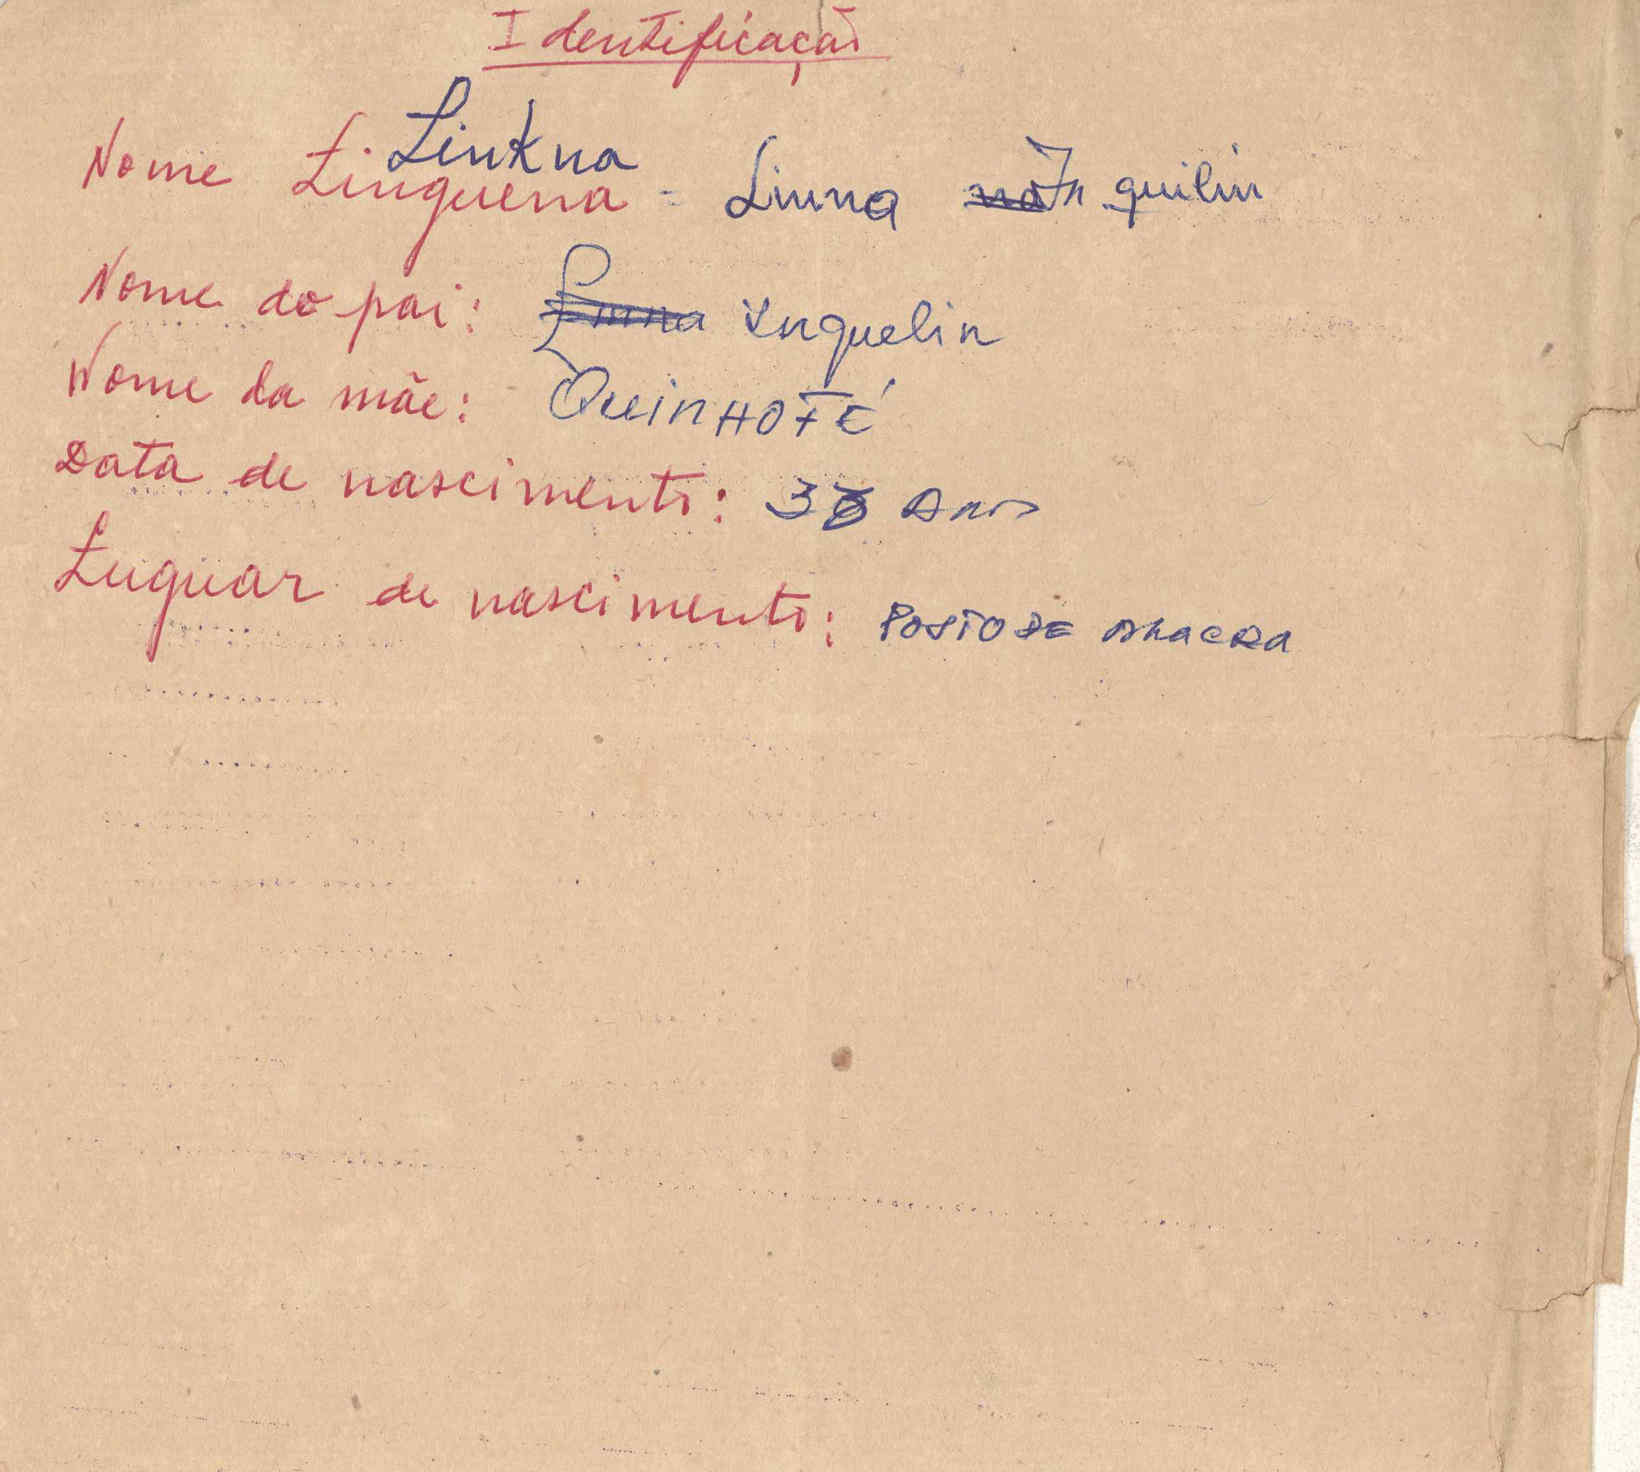 Identificação
Linkna
Nome Linguena = Limna In quilin
Nome do pai: Inquelin
Nome da mãe: QuinHOTÉ
Data de nascimento: 38 Anos
Luguar de nascimento: POSTO DE